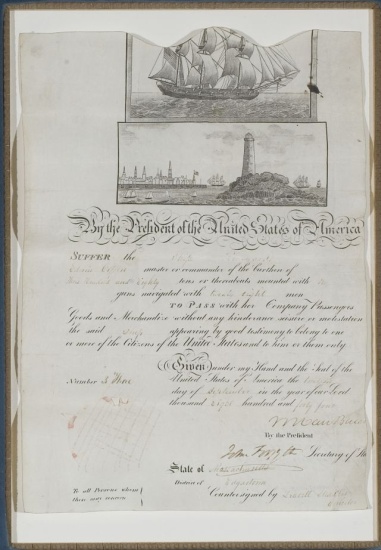 By the President of the United States of America
SUFFER the Ship
master or commander of the burthen of
Two hundred and Eighty tons or thereabouts mounted with no
guns navigated with twenty eight men
TO PASS with her Company Passengers
Goods and Merchandize without any hinderance seisure or molestation
the said Ship appearing by good testimony to belong to one
or more of the Citizens of the United States and to him or them only
Given under my Hand and the Seal of the
United States of America the
day of September in the year of our Lord
thousand eight hundred and
Number 3
By the President
John Forsyth Secretary of Sta
State of Massachusetts
District of Edgartown
To all Persons whom
these may concern
Countersigned by